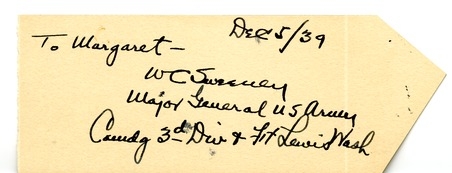 Dec 5/39
To Margaret —
W C Sweeney
Major General U S Army
Comdg 3d Div & Ft Lewis Wash